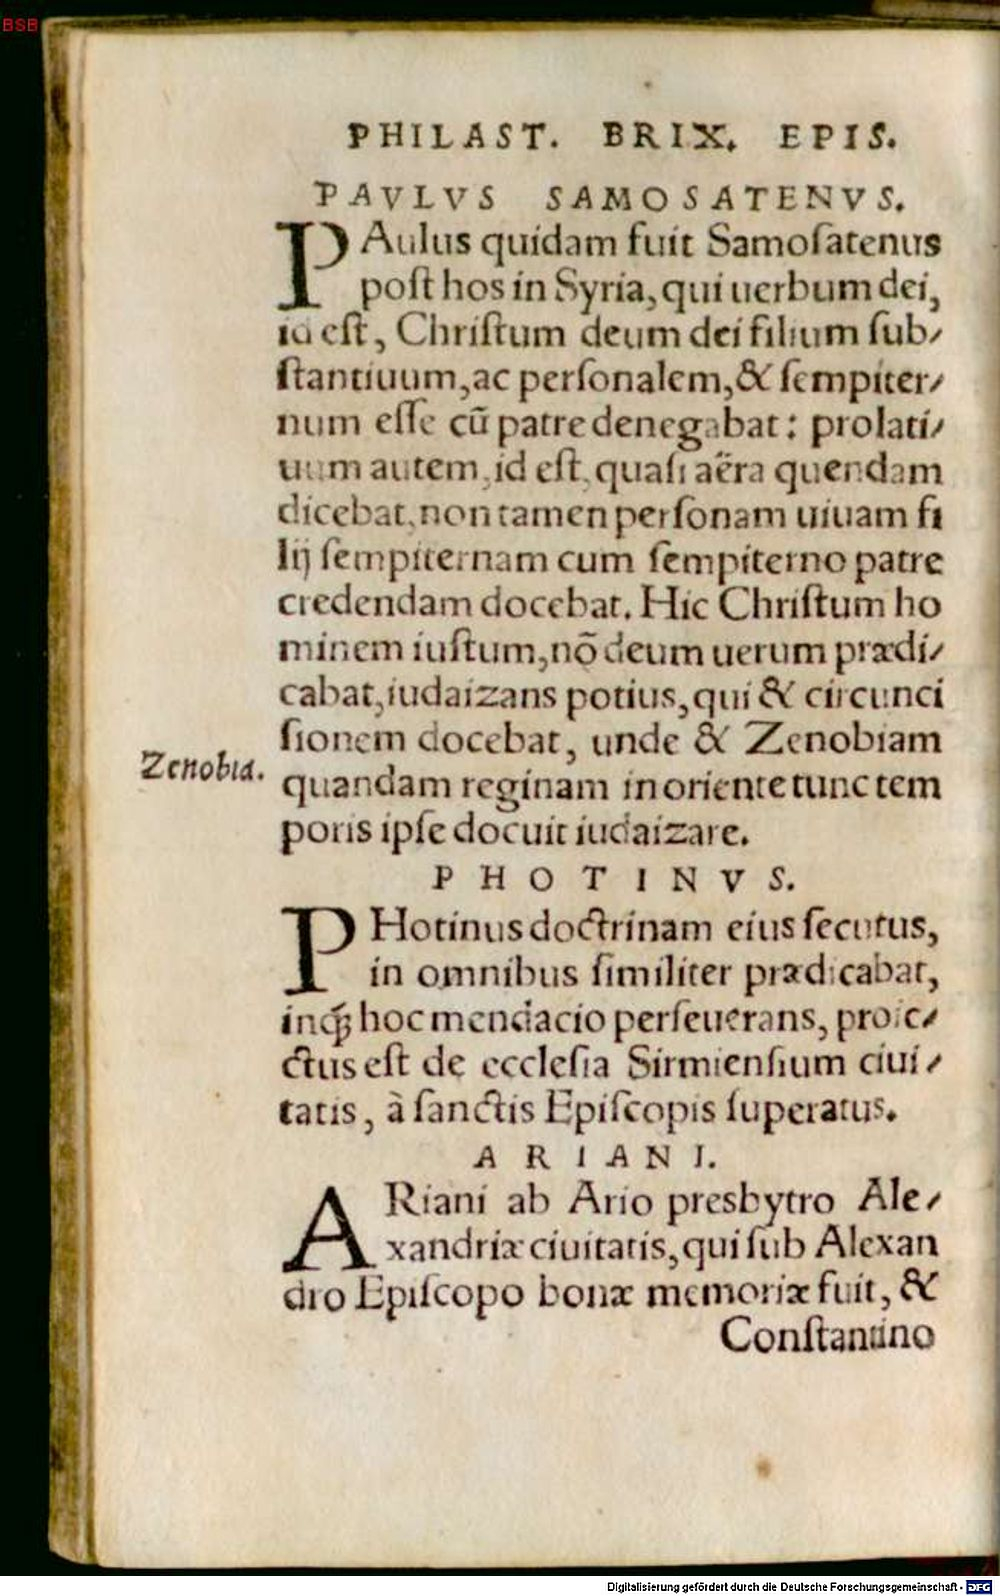 BSB
PHILAST. BRIX. EPIS.
PAVLVS SAMOSATENVS.
PAulus quidam fuit Samoſatenus
poſt hos in Syria, qui uerbum dei,
id eſt, Chriſtum deum dei filium ſub-
ſtantiuum, ac perſonalem, & ſempiter-
num eſſe cū patre denegabat: prolati-
uum autem, id eſt, quaſi aëra quendam
dicebat, non tamen perſonam uiuam fi
lij ſempiternam cum ſempiterno patre
credendam docebat. Hic Chriſtum ho
minem iuſtum, nō deum uerum prædi-
cabat, iudaizans potius, qui & circunci
ſionem docebat, unde & Zenobiam
Zenobia.
quandam reginam in oriente tunc tem
poris ipſe docuit iudaizare.
PHOTINVS.
PHotinus doctrinam eius ſecutus,
in omnibus ſimiliter prædicabat,
inq́ꝫ hoc mendacio perſeuerans, proie-
ctus eſt de eccleſia Sirmienſium ciui-
tatis, à ſanctis Epiſcopis ſuperatus.
ARIANI.
ARiani ab Ario presbytro Ale-
xandriæ ciuitatis, qui ſub Alexan
dro Epiſcopo bonæ memoriæ fuit, &
Conſtantino
Digitalisierung gefördert durch die Deutsche Forschungsgemeinschaft - DFG